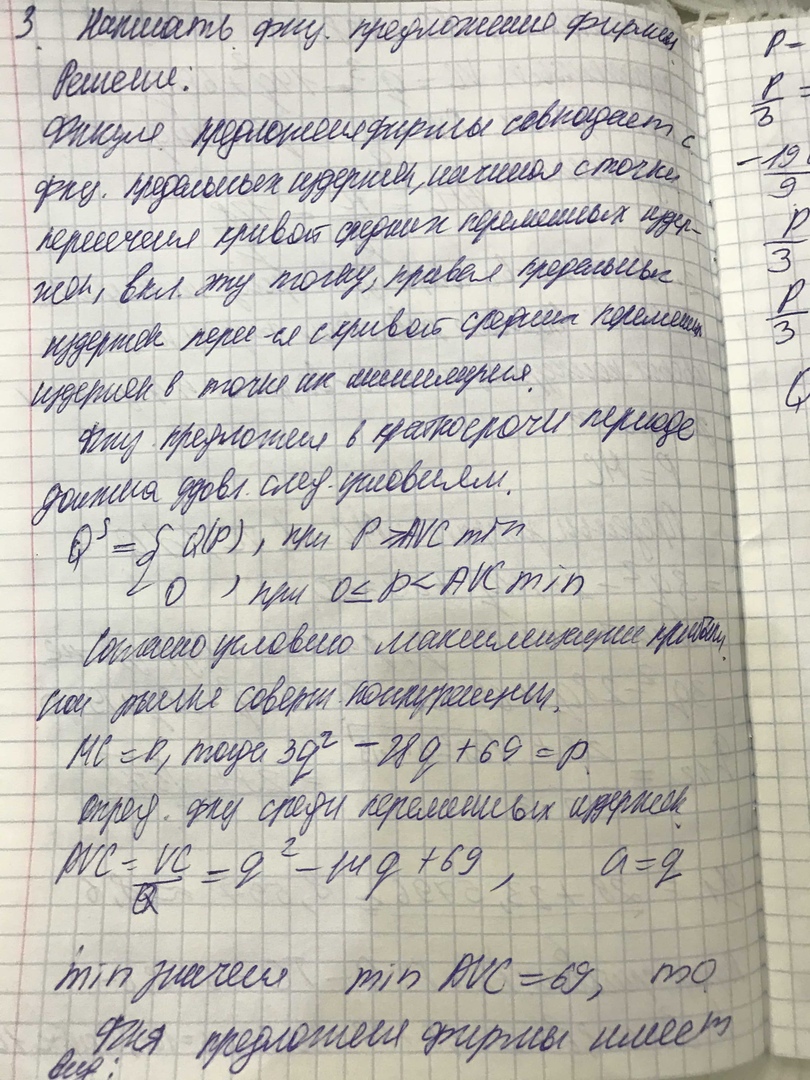 3. Написать фку. предложения фирмы.
Решение:
Функция предложения фирмы совпадает с
фку. предельных издержек, начиная с точки
пересечения кривой средних переменных издер-
жек, вкл. эту точку, кривая предельных
издержек перес-ся с кривой средних переменных
издержек в точке их минимума.
Фку предложения в краткосрочн периоде
должна удовл. след. условиям.
Q^s = { Q(P), при P ≥ AVC min
0, при 0 ≤ P < AVC min
Согласно условию максимизации прибыли
на рынке соверш. конкуренции.
MC = P, тогда 3q² - 28q + 69 = P
опред. фку средн переменных издержек
AVC = VC/Q = q² - 14q + 69, Q = q
min значения min AVC = 69, то
Фкя предложения фирмы имеет
вид:
P =
P/3 =
-19
9
P/3
P/3
Q